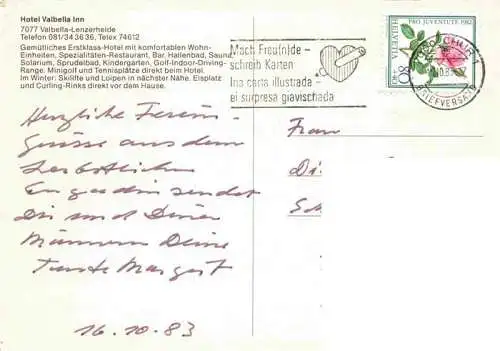 Hotel Valbella Inn
7077 Valbella-Lenzerheide
Telefon 081/34 36 36, Telex 74612
Gemütliches Erstklass-Hotel mit komfortablen Wohn-
Einheiten, Spezialitäten-Restaurant, Bar, Hallenbad, Sauna,
Solarium, Sprudelbad, Kindergarten, Golf-Indoor-Driving-
Range. Minigolf und Tennisplätze direkt beim Hotel.
Im Winter: Skilifte und Loipen in nächster Nähe. Eisplatz
und Curling-Rinks direkt vor dem Hause.
Mach Freu(n)de –
schreib Karten
Ina carta illustrada –
ei surpresa giavischada
PRO JUVENTUTE 1982
HELVETIA
80
CHUR 1
BRIEFVERSAND
Herzliche Ferien-
grüsse aus dem
herbstlichen
Engadin sendet
Dir und Deinen
Männern Deine
Tante Margrit
16.10.83
Frau
Di
Sch